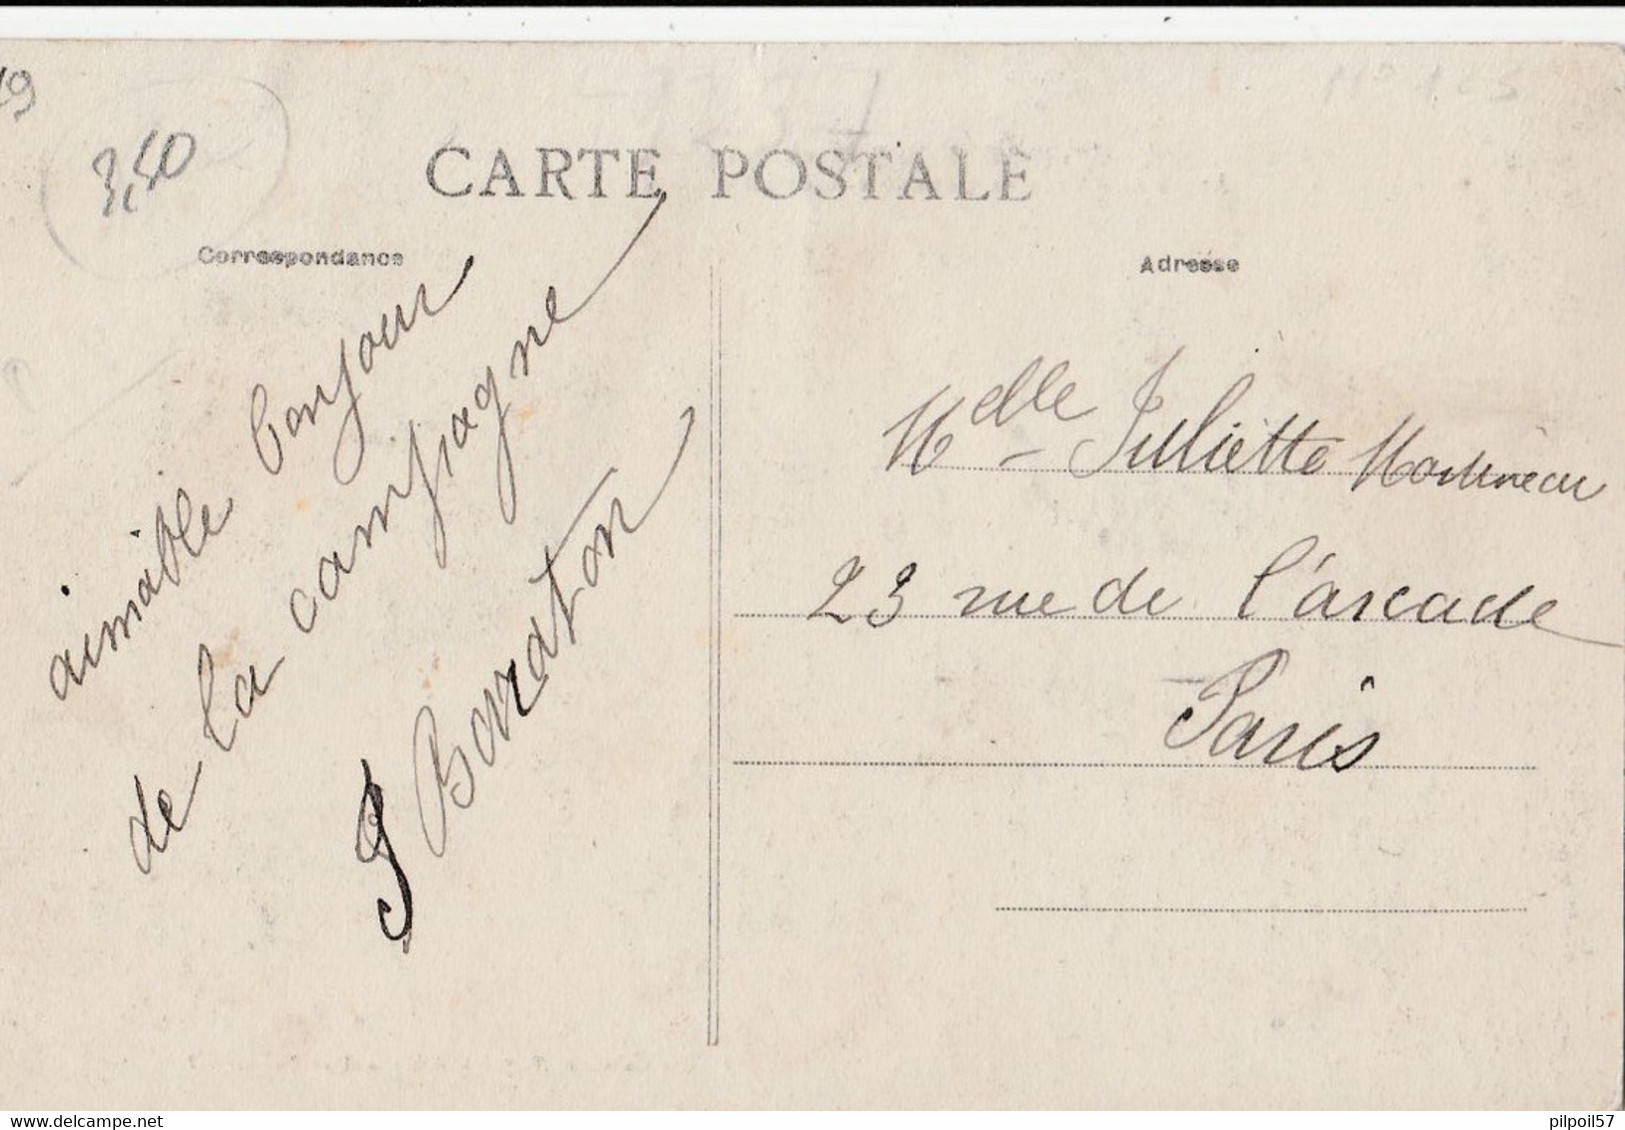 19
3,50
CARTE POSTALE
Correspondance
Adresse
aimable bonjour
de la campagne
J Boraton
Mdlle Juliette Martineau
23 rue de l'arcade
Paris
www.delcampe.net
pilpoil57